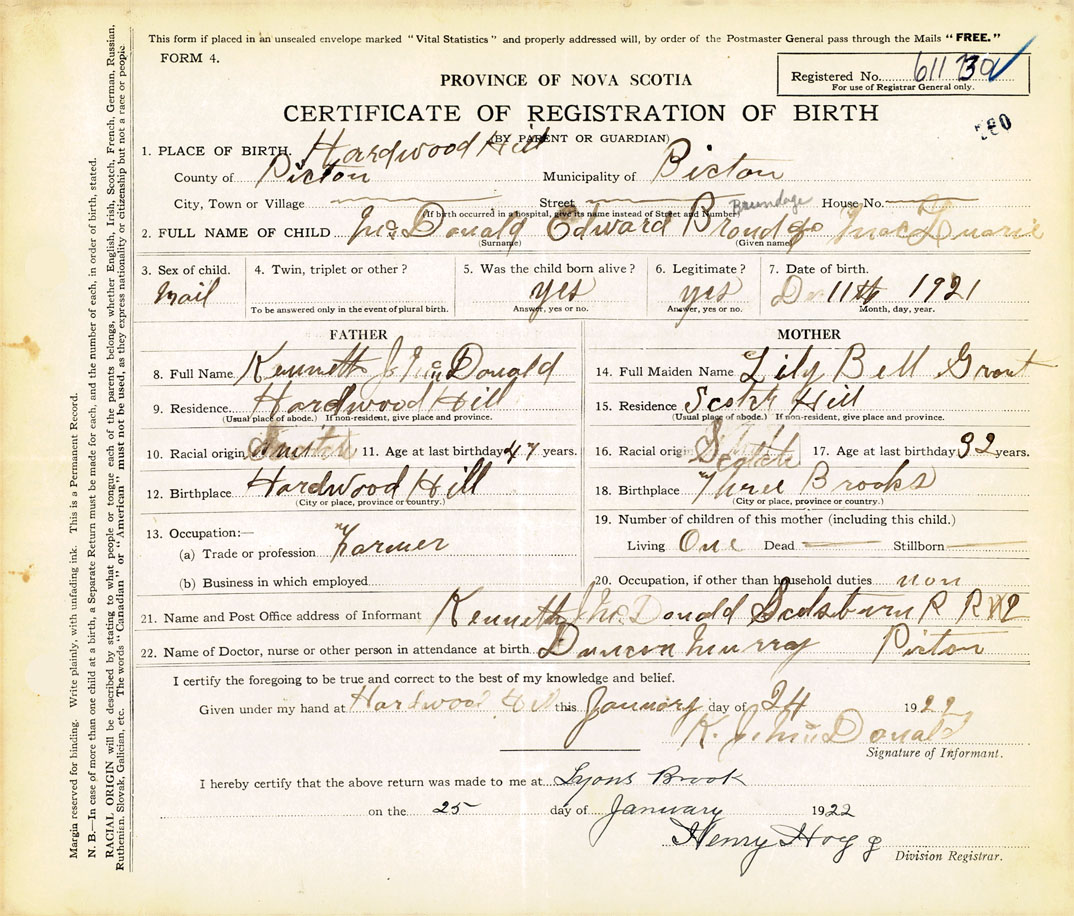 This form if placed in an unsealed envelope marked "Vital Statistics" and properly addressed will, by order of the Postmaster General pass through the Mails "FREE."
FORM 4.
Registered No. 611 130
For use of Registrar General only.
PROVINCE OF NOVA SCOTIA
CERTIFICATE OF REGISTRATION OF BIRTH
(BY PARENT OR GUARDIAN)
1. PLACE OF BIRTH. Hardwood Hill
County of Picton Municipality of Picton
City, Town or Village Street House No.
(If birth occurred in a hospital, give its name instead of Street and Number)
Brundage
2. FULL NAME OF CHILD McDonald Edward
(Surname) (Given name)
3. Sex of child. 4. Twin, triplet or other? 5. Was the child born alive? 6. Legitimate? 7. Date of birth.
mail yes yes 11th 1921
To be answered only in the event of plural birth. Answer, yes or no. Answer, yes or no. Month, day, year.
FATHER
8. Full Name Kenneth J McDonald
9. Residence Hardwood Hill
(Usual place of abode.) If non-resident, give place and province.
10. Racial origin 11. Age at last birthday 47 years.
12. Birthplace Hardwood Hill
(City or place, province or country.)
13. Occupation:—
(a) Trade or profession Farmer
(b) Business in which employed
MOTHER
14. Full Maiden Name Lily Bell Grant
15. Residence Scotch Hill
(Usual place of abode.) If non-resident, give place and province.
16. Racial origin Scotch 17. Age at last birthday 32 years.
18. Birthplace Three Brooks
(City or place, province or country.)
19. Number of children of this mother (including this child.)
Living One Dead Stillborn
20. Occupation, if other than household duties non
21. Name and Post Office address of Informant Kenneth J McDonald Scotsburn R R
22. Name of Doctor, nurse or other person in attendance at birth. Duncan Murray Picton
I certify the foregoing to be true and correct to the best of my knowledge and belief.
Given under my hand at Hardwood Hill this January day of 24 1922
K. J. McDonald
Signature of Informant.
I hereby certify that the above return was made to me at Lyons Brook
on the 25 day of January 1922
Henry Hogg
Division Registrar.
Margin reserved for binding. Write plainly, with unfading ink. This is a Permanent Record.
N. B.—In case of more than one child at a birth, a Separate Return must be made for each, and the number of each, in order of birth, stated.
RACIAL ORIGIN will be described by stating to what people or tongue each of the parents belongs, whether English, Irish, Scotch, French, German, Russian,
Ruthenian, Slovak, Galician, etc. The words "Canadian" or "American" must not be used, as they express nationality or citizenship but not a race or people